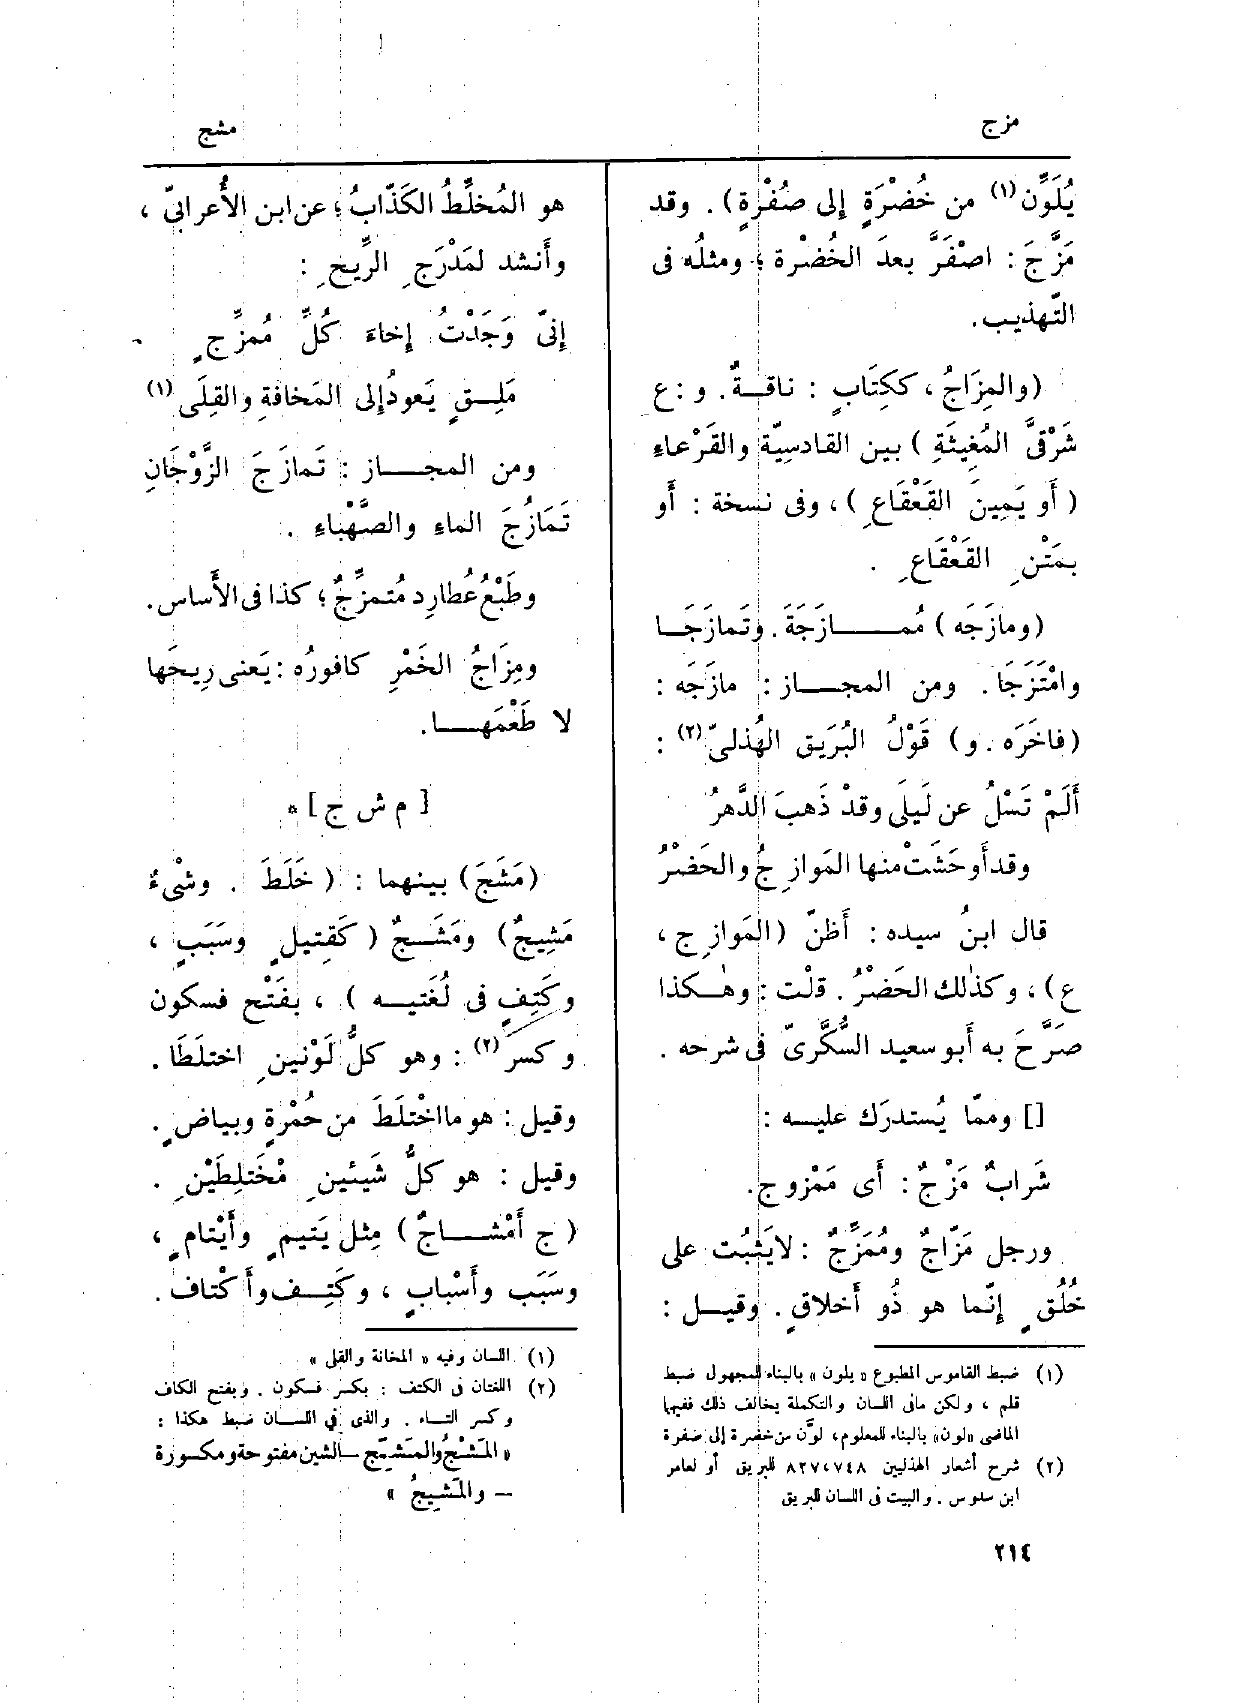 مزج
مشج
يُلَوَّن (١) من خُضْرَةٍ إلى صُفْرَةٍ) . وقد
مَزَّجَ : اصْفَرَّ بعدَ الخُضْرة ؛ ومثلُه فى
التّهذيب.
(والمِزَاجُ ، ككِتَابٍ : ناقـةٌ. و : ع
شَرْقىَّ المُغِيثَةِ ) بين القادسِيّة والقَرْعاءِ
( أَو يَمِينَ القَعْقَاعِ ) ، وفى نسخة : أَو
بمَتْنِ القَعْقَاعِ .
(ومازَجَه ) مُمــازَجَةً . وتَمازَجَــا
وامْتَزَجَا. ومن المجــاز : مازَجَه :
(فاخَرَه . و) قَوْلُ البُرَيق الهُذلىّ (٢) :
أَلَمْ تَسْلُ عن لَيلَى وقدْ ذَهبَ الدَّهرُ
وقد أَوحَشَتْ منها المَوازِجُ والحَضْرُ
قال ابنُ سيده : أَظنّ (المَوازِج ،
ع ) ، وكذٰلك الحَضْرُ . قلْت : وهٰـكذا
صَرَّحَ به أَبو سعيد السُّكَّرىّ فى شرحه .
[] وممّا يُستدرَك عليـه :
شَرابٌ مَزْجٌ : أَى مَمْزوج.
ورجل مَزّاجٌ ومُمَزِّجٌ : لا يَثبُت على
خُلُقٍ إنّما هو ذُو أَخلاقٍ . وقيـل :
(١) ضبط القاموس المطبوع « يلون » بالبناء للمجهول ضبط
قلم ، ولكن مافى اللسان والتكملة يخالف ذلك ففيهما
الماضى «لون» بالبناء للمعلوم، لوَّن من خضرة إلى صفرة
(٢) شرح أشعار الهذليين ٧٤٨، ٨٢٧ للبريق أو لعامر
ابن سدوس . والبيت فى اللسان للبريق
هو المُخلِّطُ الكَذّابُ ؛ عن ابن الأَعرابىّ ،
وأَنشد لمَدْرَجِ الرِّيحِ :
إنىّ وَجَدْتُ إخاءَ كُلِّ مُمزِّجٍ
مَلِـقٍ يَعودُ إلى المَخافةِ والقِلَى (١)
ومن المجــاز : تَمازَجَ الزَّوْجَانِ
تَمَازُجَ الماءِ والصَّهْباءِ .
وطَبْعُ عُطارِد مُتمزِّجٌ ؛ كذا فى الأَساس.
ومِزَاجُ الخَمْرِ كافورُه : يَعنى رِيحَها
لا طَعْمَهــا.
[ م ش ج ] *
(مَشَجَ) بينهما : ( خَلَطَ . وشْىءٌ
مَشِيجٌ) ومَشَـجٌ ( كَقتِيلٍ وسَبَبٍ ،
وكَتِفٍ فى لُغَتيـه ) ، بفَتْح فسكون
وكسر (٢) : وهو كلُّ لَوْنينِ اختلَطَا .
وقيل : هو ما اخْتلَطَ من حُمْرةٍ وبياضٍ .
وقيل : هو كلُّ شَيئينِ مْخَتلِطَيْنِ .
( ج أَمْشــاجٌ ) مِثل يَتيمٍ وأَيْتامٍ ،
وسَبَب وأَسْبابٍ ، وكَتِــف وأَكْتاف .
(١) اللسان وفيه « المخانة والقل »
(٢) اللغتان فى الكتف : بكسر فسكون . وبفتح الكاف
وكسر التــاء . والذى في اللســان ضبط هكذا :
« المَشْجُ والمَشَـِج ــ الشين مفتوحة ومكسورة
ــ والمَشِيجُ »
٢١٤